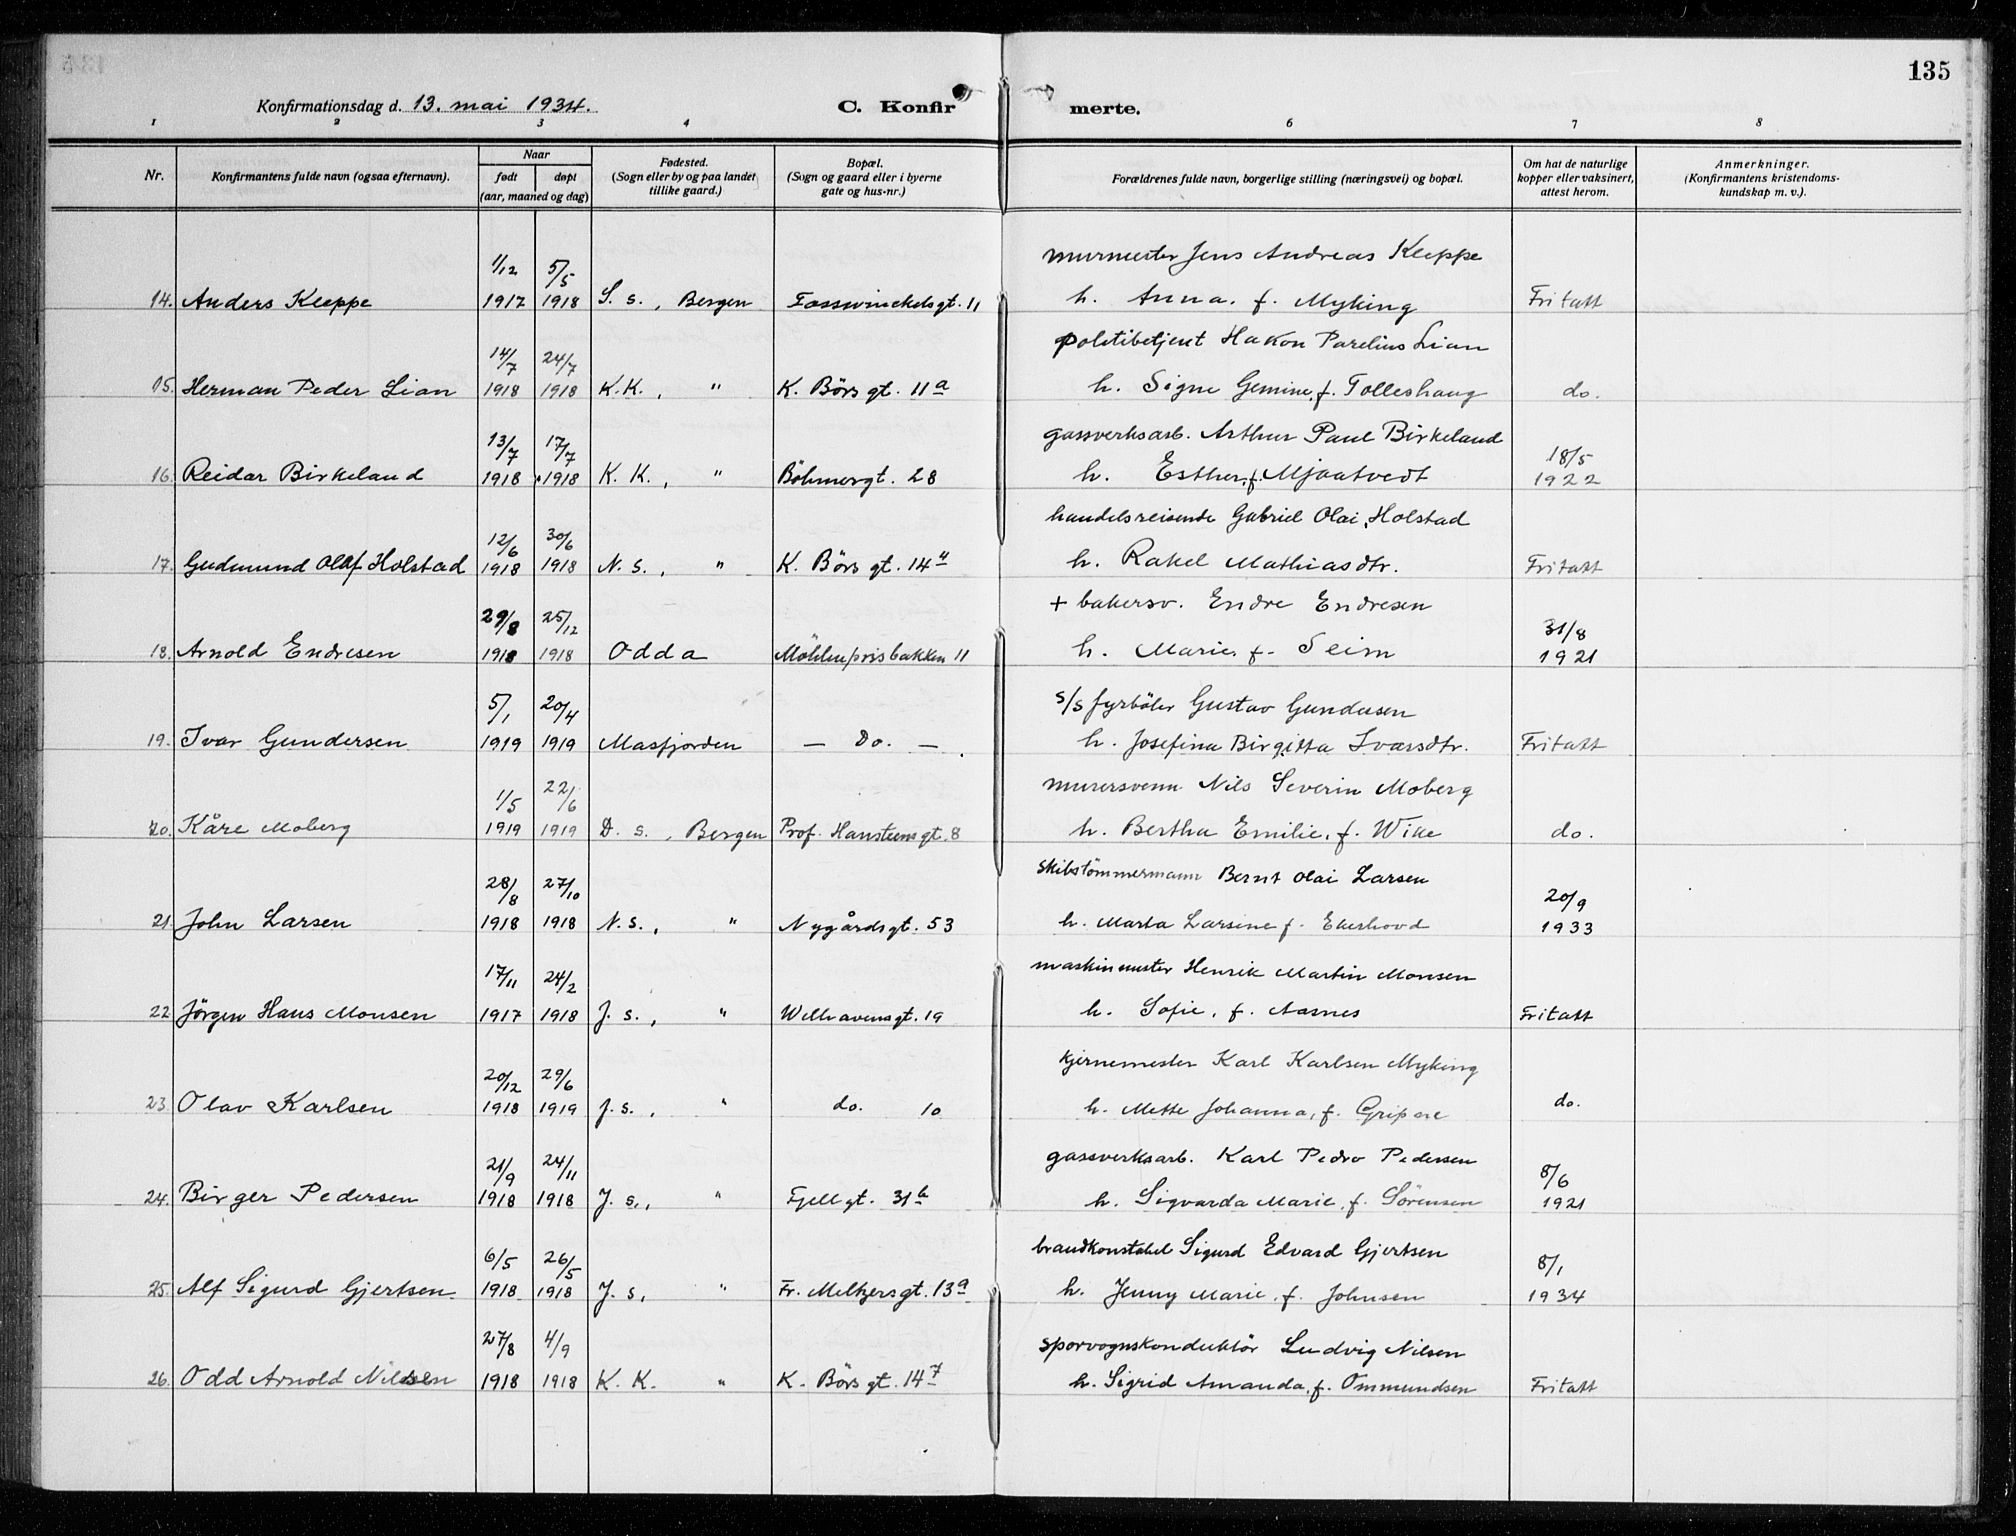 135
Konfirmationsdag d. 13. mai 1934.
C. Konfirmerte.
1 2 3 4 5 6 7 8
Nr.
Konfirmantens fulde navn (ogsaa efternavn).
Naar
født døpt
(aar, maaned og dag)
Fødested.
(Sogn eller by og paa landet
tillike gaard.)
Bopæl.
(Sogn og gaard eller i byerne
gate og hus-nr.)
Forældrenes fulde navn, borgerlige stilling (næringsvei) og bopæl.
Om hat de naturlige
kopper eller vaksinert,
attest herom.
Anmerkninger.
(Konfirmantens kristendoms-
kundskap m. v.).
1/12 5/5 murmester Jens Andreas Kleppe
14. Anders Kleppe 1917 1918 S. s., Bergen Fosswinckelsgt. 11 h. Anna. f. Myking Fritatt
14/7 24/7 politibetjent Hakon Parelius Lian
15. Herman Peder Lian 1918 1918 K.K., " K. Börs gt. 11a h. Signe Gemine, f. Tolleshaug do.
13/7 17/7 gassverksarb. Arthur Paul Birkeland 18/5
16. Reidar Birkeland 1918 1918 K. K., " Böhmersgt. 28 h. Esther, f. Mjaatvedt 1922
12/6 30/6 handelsreisende Gabriel Olai Holstad
17. Gudmund Olaf Holstad 1918 1918 N. s., " K. Börs gt. 14 h. Rakel Mathiasdtr. Fritatt
29/8 25/12 + bakersv. Endre Endresen 31/8
18. Arnold Endresen 1918 1918 Odda Möhlenprisbakken 11 h. Marie, f. Seim 1921
5/1 20/4 s/s fyrböter Gustav Gundersen
19. Ivar Gundersen 1919 1919 Masfjorden — Do. — h. Josefina Birgitta Ivarsdtr. Fritatt
1/5 22/6 murersvenn Nils Severin Moberg
20. Kåre Moberg 1919 1919 D. s., Bergen Prof. Hansteensgt. 8 h. Bertha Emilie, f. Wike do.
28/8 27/10 skibstömmermann Bernt Olai Larsen 20/9
21. John Larsen 1918 1918 N. s., " Nygårdsgt. 53 h. Marta Larsine f. Ekerhovd 1933
17/11 24/2 maskinmester Henrik Martin Monsen
22 Jörgen Hans Monsen 1917 1918 J. s., " Welhavensgt. 19 h. Sofie, f. Aasnes Fritatt
20/12 29/6 kjernemester Karl Karlsen Myking
23 Olav Karlsen 1918 1919 J. s., " do. 10 h. Mette Johanna, f. do.
21/9 24/11 gassverksarb. Karl Pedro Pedersen 8/6
24. Birger Pedersen 1918 1918 J. s., " Fjellgt. 31b h. Sigvarda Marie, f. Sörensen 1921
6/5 26/5 brandkonstabel Sigurd Edvard Gjertsen 8/1
25. Alf Sigurd Gjertsen 1918 1918 J. s, " Fr. Meltzersgt. 13a h. Jenny Marie, f. Johnsen 1934
27/8 4/9 sporvognskonduktör Ludvig Nilsen
26. Odd Arnold Nilsen 1918 1918 K. K. " K. Börs gt. 14 7 h. Sigrid Amanda, f. Ommundsen Fritatt